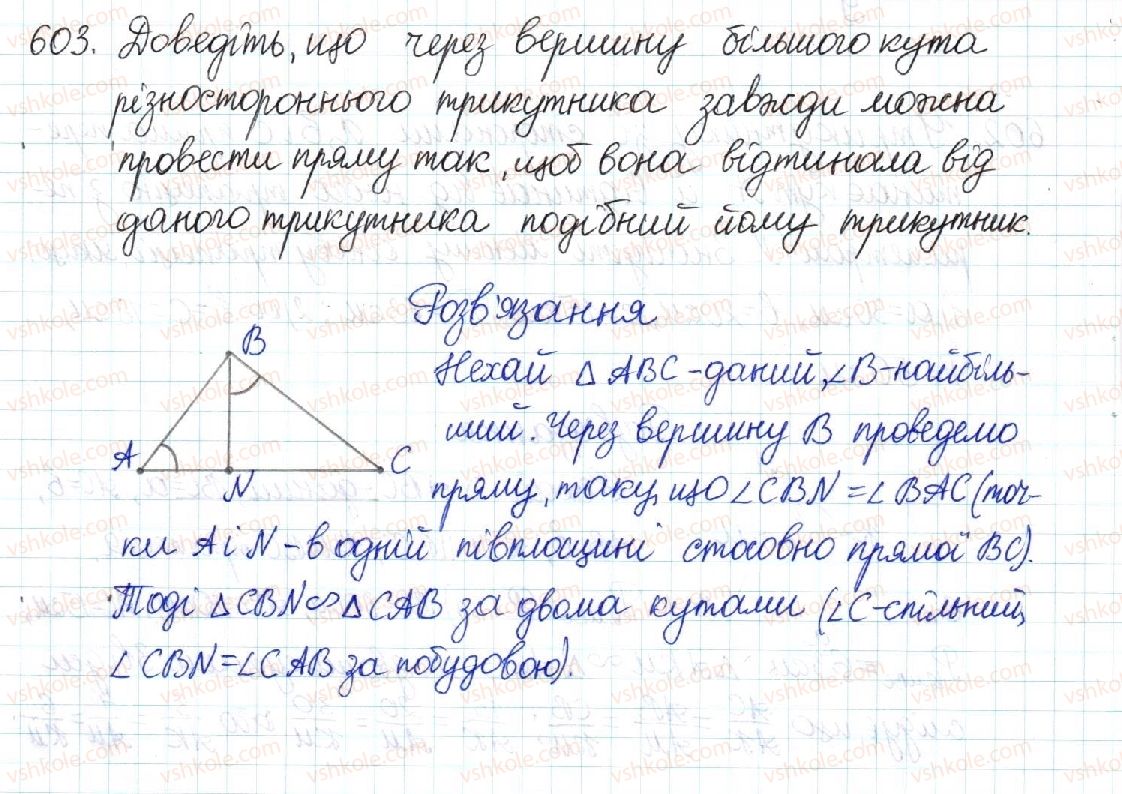 603. Доведіть, що через вершину більшого кута
різностороннього трикутника завжди можна
провести пряму так, щоб вона відтинала від
даного трикутника подібний йому трикутник.
Розв'язання
B
A
N
C
Нехай △ABC - даний, ∠B - найбіль-
ший. Через вершину B проведемо
пряму, таку, що ∠CBN = ∠BAC (точ-
ки A і N - в одній півплощині стосовно прямої BC).
Тоді △CBN ∽ △CAB за двома кутами (∠C - спільний,
∠CBN = ∠CAB за побудовою).